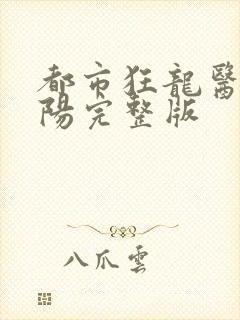 都市狂龍醫
陽完整版
八爪雲